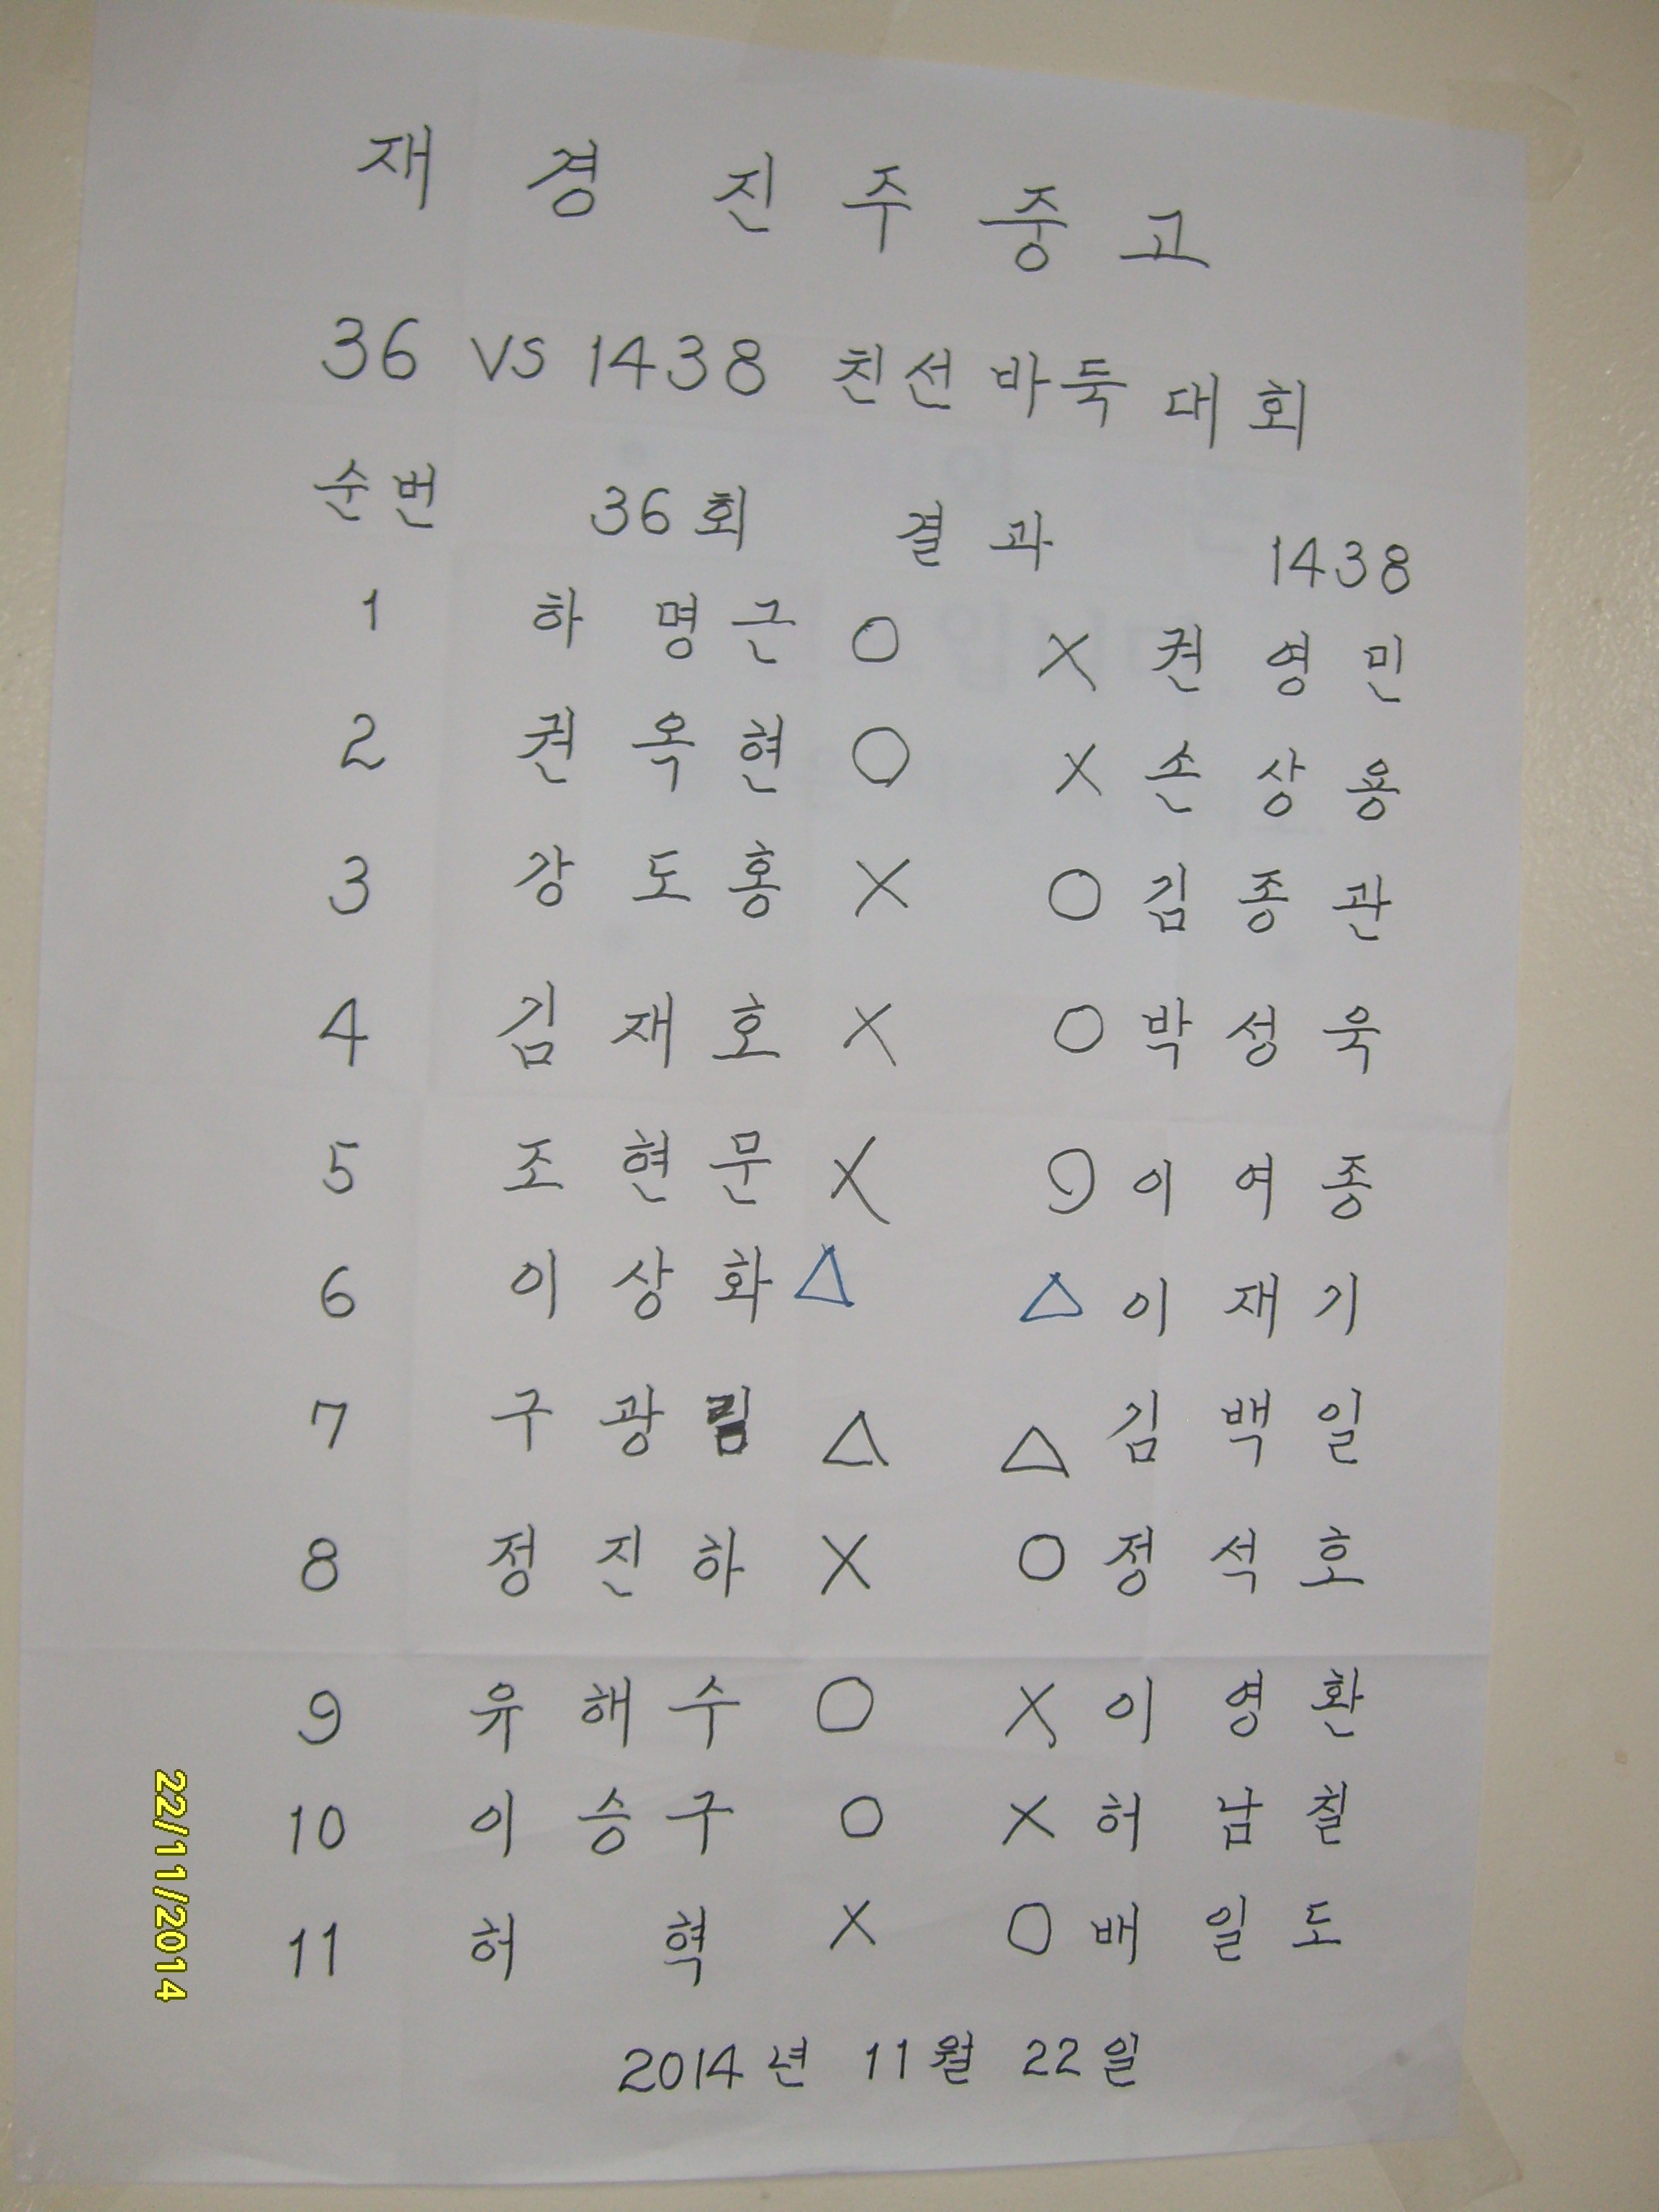 재경진주중고
36 VS 1438 친선바둑대회
순번 36회 결과 1438
1 하명근 ○ × 권영민
2 권옥현 ○ × 손상용
3 강도홍 × ○ 김종관
4 김재호 × ○ 박성욱
5 조현문 × ○ 이여종
6 이상화 △ △ 이재기
7 구광림 △ △ 김백일
8 정진하 × ○ 정석호
9 유해수 ○ × 이영환
10 이승구 ○ × 허남칠
11 허혁 × ○ 배일도
2014년 11월 22일
22/11/2014